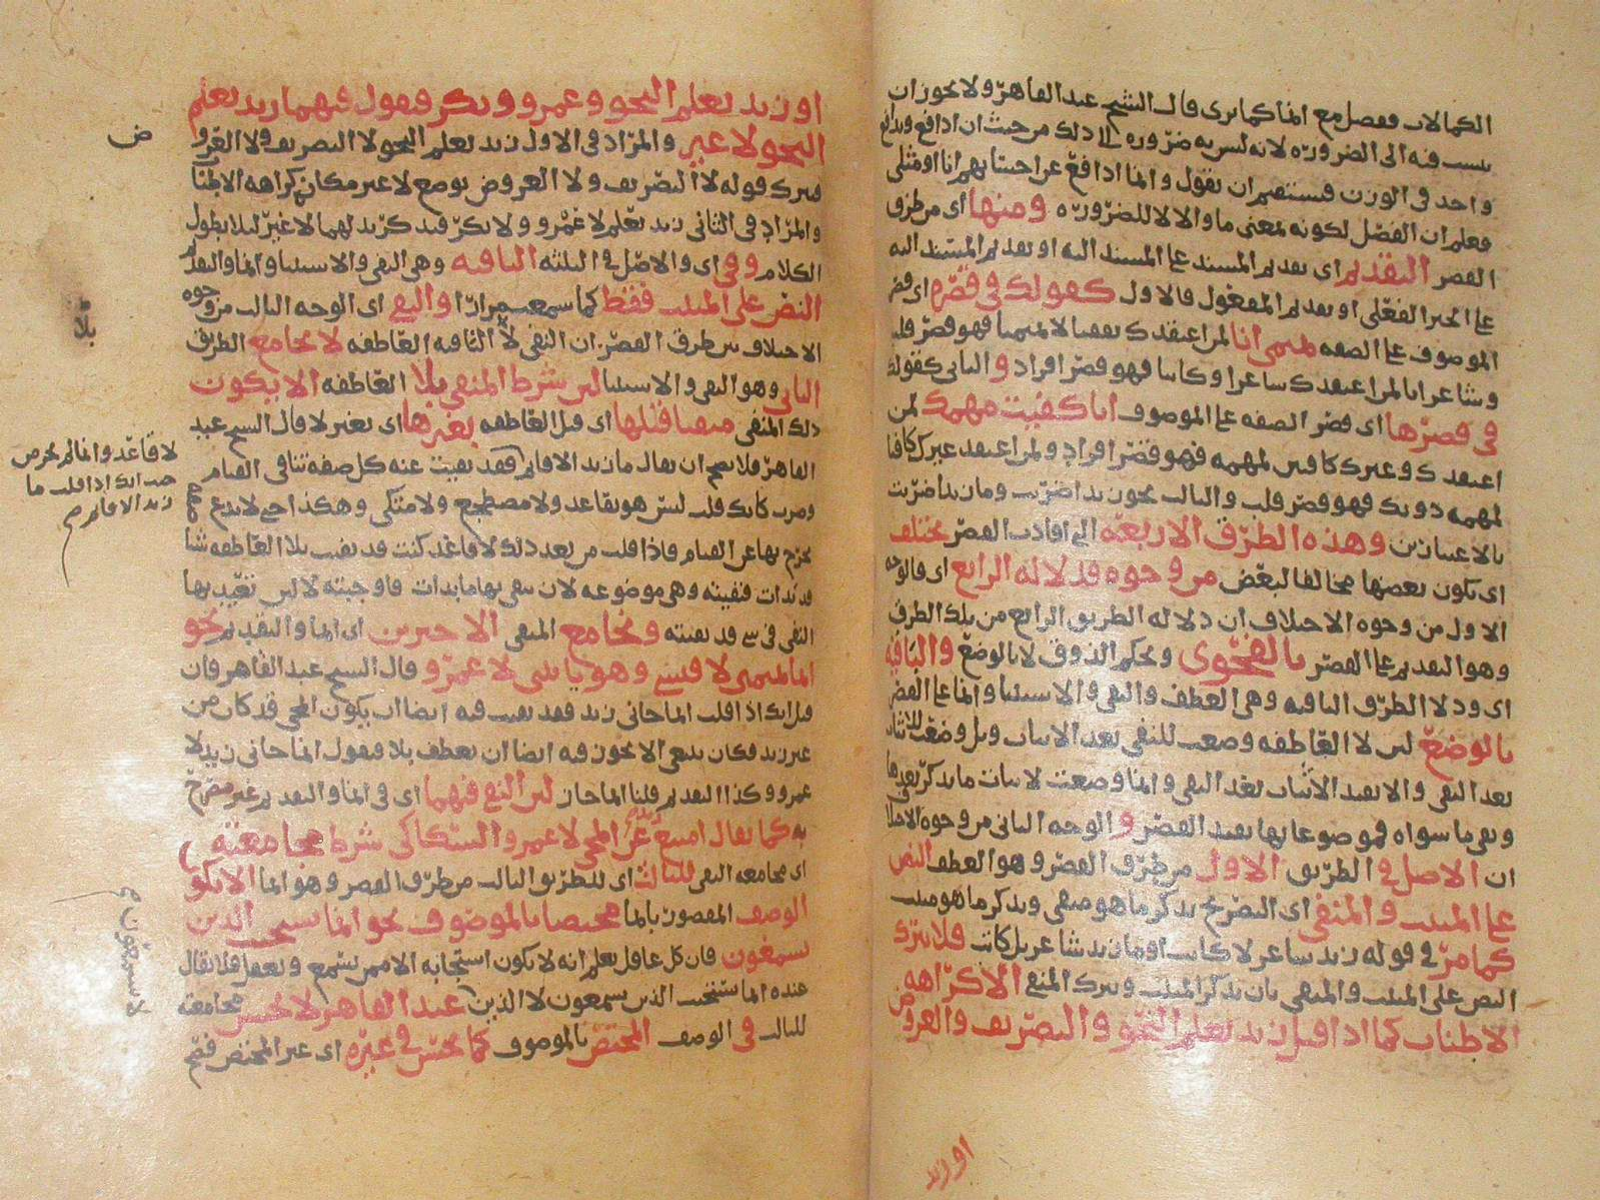 الكمالات ففصل مع انما كما ترى قال الشيخ عبد القاهر ولا يجوز ان
ينسب فيه الى الضرورة لانه ليس به ضرورة الى ذلك من حيث ان ادافع ويدافع
واحد في الوزن فيستقيم ان يقول وانما ادافع عن احسابهم انا او مثلى
فعلم ان الفصل لكونه بمعنى ما والا لا للضرورة ومنها اى من طرق
القصر التقديم اى تقديم المسند على المسند اليه او تقديم المسند اليه
على الخبر الفعلى او تقديم المفعول فالاول كقولك في قصره اى قصر
الموصوف على الصفة تميمى انا لمن اعتقدك قيسيا لا تميميا فهو قصر قلب
وشاعر انا لمن اعتقدك شاعرا وكاتبا فهو قصر افراد والثانى كقولك
في قصرها اى قصر الصفة على الموصوف انا كفيت مهمك لمن
اعتقدك وغيرك كافيين لمهمه فهو قصر افراد ولمن اعتقد غيرك كافيا
لمهمه دونك فهو قصر قلب والثالث نحو زيدا ضربت وما زيدا ضربت
بالاعتبارين وهذه الطرق الاربعة الى افادت القصر تختلف
اى يكون بعضها مخالفا لبعض من وجوه فدلالة الرابع اى فالوجه
الاول من وجوه الاختلاف ان دلالة الطريق الرابع من تلك الطرق
وهو التقديم على القصر بالفحوى وبحكم الذوق لا بالوضع والباقية
اى ودلا الطرق الباقية وهى العطف والنفى والاستثنا وانما على القصر
بالوضع لان لا العاطفة وضعت للنفى بعد الاثبات وبل وضعت للاثبات
بعد النفى والا يفيد الاثبات بعد النفى وانما وضعت لاثبات ما يذكر بعدها
ونفى ما سواه فموضوعاتها يفيد القصر والوجه الثانى من وجوه الاختلاف
ان الاصل في الطريق الاول من طرق القصر وهو العطف النص
على المثبت والمنفى اى التصريح بذكر ما هو منفى ويذكر ما هو مثبت
كما مر في قوله زيد شاعر لا كاتب او ما زيد شاعر بل كاتب فلا يترك
النص على المثبت والمنفى بان يذكر المثبت ويترك المنفى الا كراهة
الاطناب كما اذا قيل زيد يعلم النحو والتصريف والعروض
او زيد
او زيد يعلم النحو وعمرو وبكر فيقول فيهما زيد يعلم
النحو لا غير والمراد في الاول زيد يعلم النحو لا التصريف ولا العرو
فترك قوله لا التصريف ولا العروض بوضع لا غير مكانه كراهة الاطنا
والمراد في الثانى زيد يعلم لا عمرو ولا بكر فيد كزيد لهما لا غير ليلا يطول
الكلام وفي اى والاصل في الثلثة الباقية وهى النفى والاستثنا وانما والتقديم
النص على المثبت فقط كما سمعت مرارا والنفى اى الوجه الثالث من وجوه
الاختلاف بين طرق القصر ان النفى بلا الثافية العاطفة لا يجامع الطرق
الثانى وهو النفى والاستثنا لان شرط المنفى بلا العاطفة الا يكون
ذلك المنفى منفيا قبلها اى قبل العاطفة بغيرها اى بغير لا قال الشيخ عبد
القاهر فلا يصح ان يقال ما زيد الا قايم فقد نفيت عنه كل صفة تنافى القيام
وصرت كانك قلت ليس هو بقاعد ولا مضطجع ولا متكى وهكذا حتى لا تدع
يخرج بها عن القيام فاذا قلت من بعد ذلك لا قاعد كنت قد نفيت بلا العاطفة شيا
قد بدات فنفيته وهى موضوعه لان ينفى بها ما بدات فاوجبته لا لان تفيد بها
النفى في شى قد نفيته ويجامع المنفى الاخيرين اى انما والتقديم نحو
انما تميمى لا قيسى وهو ياتينى لا عمرو قال الشيخ عبد القاهر فان
قيل انك اذا قلت انما جانى زيد فقد نفيت فيه ايضا ان يكون المجى قد كان من
غير زيد فكان ينبغى الا يجوز فيه ايضا ان يعطف بلا فيقول انما جانى زيد لا
عمرو وكذا التقديم قلنا انما جاز لان النفى فيهما اى في انما والتقديم غير مصرح
به كما يقال امتنع زيد عن المجى لا عمرو والسكاكى شرط مجامعته
اى مجامعة النفى للثالث اى للطريق الثالث من طرق القصر وهو انما الا يكو
الوصف المقصور بانما مختصا بالموصوف نحو انما يستجيب الذين
يسمعون فان كل عاقل يعلم انه لا يكون استجابة الا ممن يسمع ويعقل فلا يقال
عنده انما يستجيب الذين يسمعون لا الذين عبد القاهر لا يحسن مجامعته
للثالث في الوصف المختص بالموصوف كما يحسن في غيره اى غير المختص فصح
ض
بلا
لا قاعد وانما لم يخرج
حيث انك اذا قلت ما
زيد الا قايم صح
لا يسمعون صح